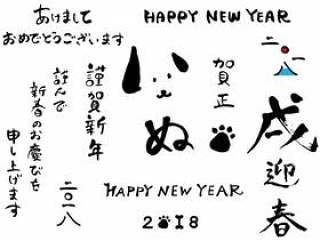 あけまして
おめでとうございます
HAPPY NEW YEAR
二〇一八
戌
迎春
賀正
いぬ
謹賀新年
謹んで
新春のお慶びを
申し上げます
二〇一八
HAPPY NEW YEAR
2018